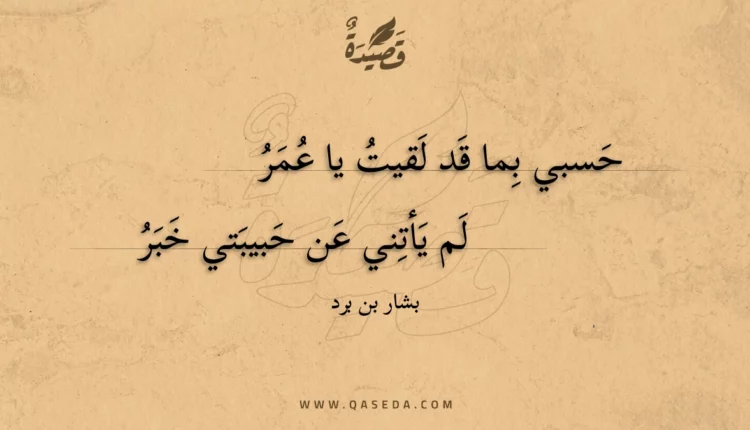 قَصِيدَةٌ
حَسبي بِما قَد لَقيتُ يا عُمَرُ
لَم يَأتِني عَن حَبيبَتي خَبَرُ
بشار بن برد
WWW.QASEDA.COM